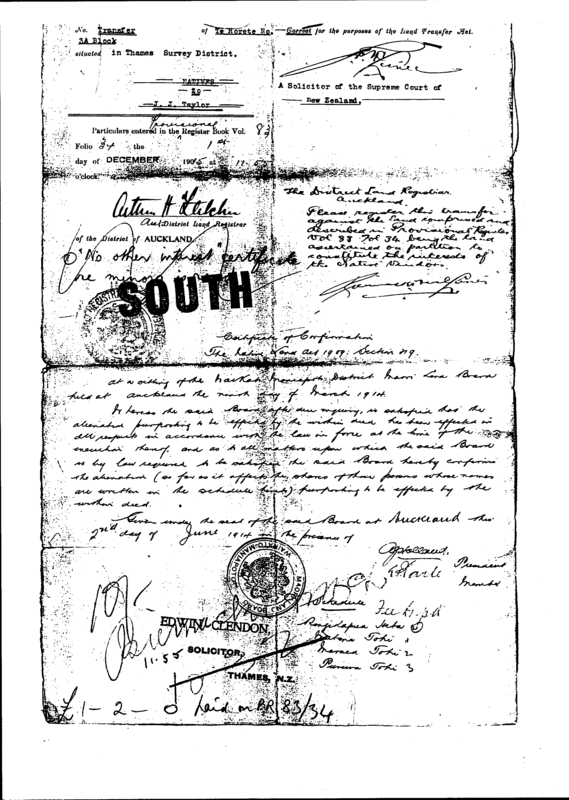 No. Transfer of Te Horete No. Correct for the purposes of the Land Transfer Act.
3A Block
situated in Thames Survey District.
NATIVES
to
J. J. Taylor
A Solicitor of the Supreme Court of
New Zealand.
Provisional
Particulars entered in the Register Book Vol. 83
Folio 34 the 1st
day of DECEMBER 1905 at
o'clock
District Land Registrar
of the District of AUCKLAND.
"No other interest" certificate
re minor
SOUTH
The District Land Registrar
Auckland.
Please register this transfer
against the land comprised and
described in Provisional Register
Vol 83 Fol 34 being the land
ascertained on partition to
constitute the interests of
the Native Vendors.
Certificate of Confirmation
The Native Land Act 1909: Section
At a sitting of the Waikato Maniapoto District Maori Land Board
held at Auckland the ninth day of March 1914
Whereas the said Board after due inquiry, is satisfied that the
alienation purporting to be effected by the within deed has been effected in
all respects in accordance with the law in force at the time of the
execution thereof, and as to all matters upon which the said Board
is by law required to be satisfied the said Board hereby confirms
the alienation (so far as it affects the shares of those persons whose names
are written in the schedule hereto) purporting to be effected by the
within deed.
Given under the seal of the said Board at Auckland this
2nd day of June 1914 in the presence of
President
Member
Schedule
EDWIN CLENDON,
11.55 SOLICITOR,
THAMES, N.Z.
Tohi 1
Tohi 2
Tohi 3
£1-2-0 Laid on PR 83/34